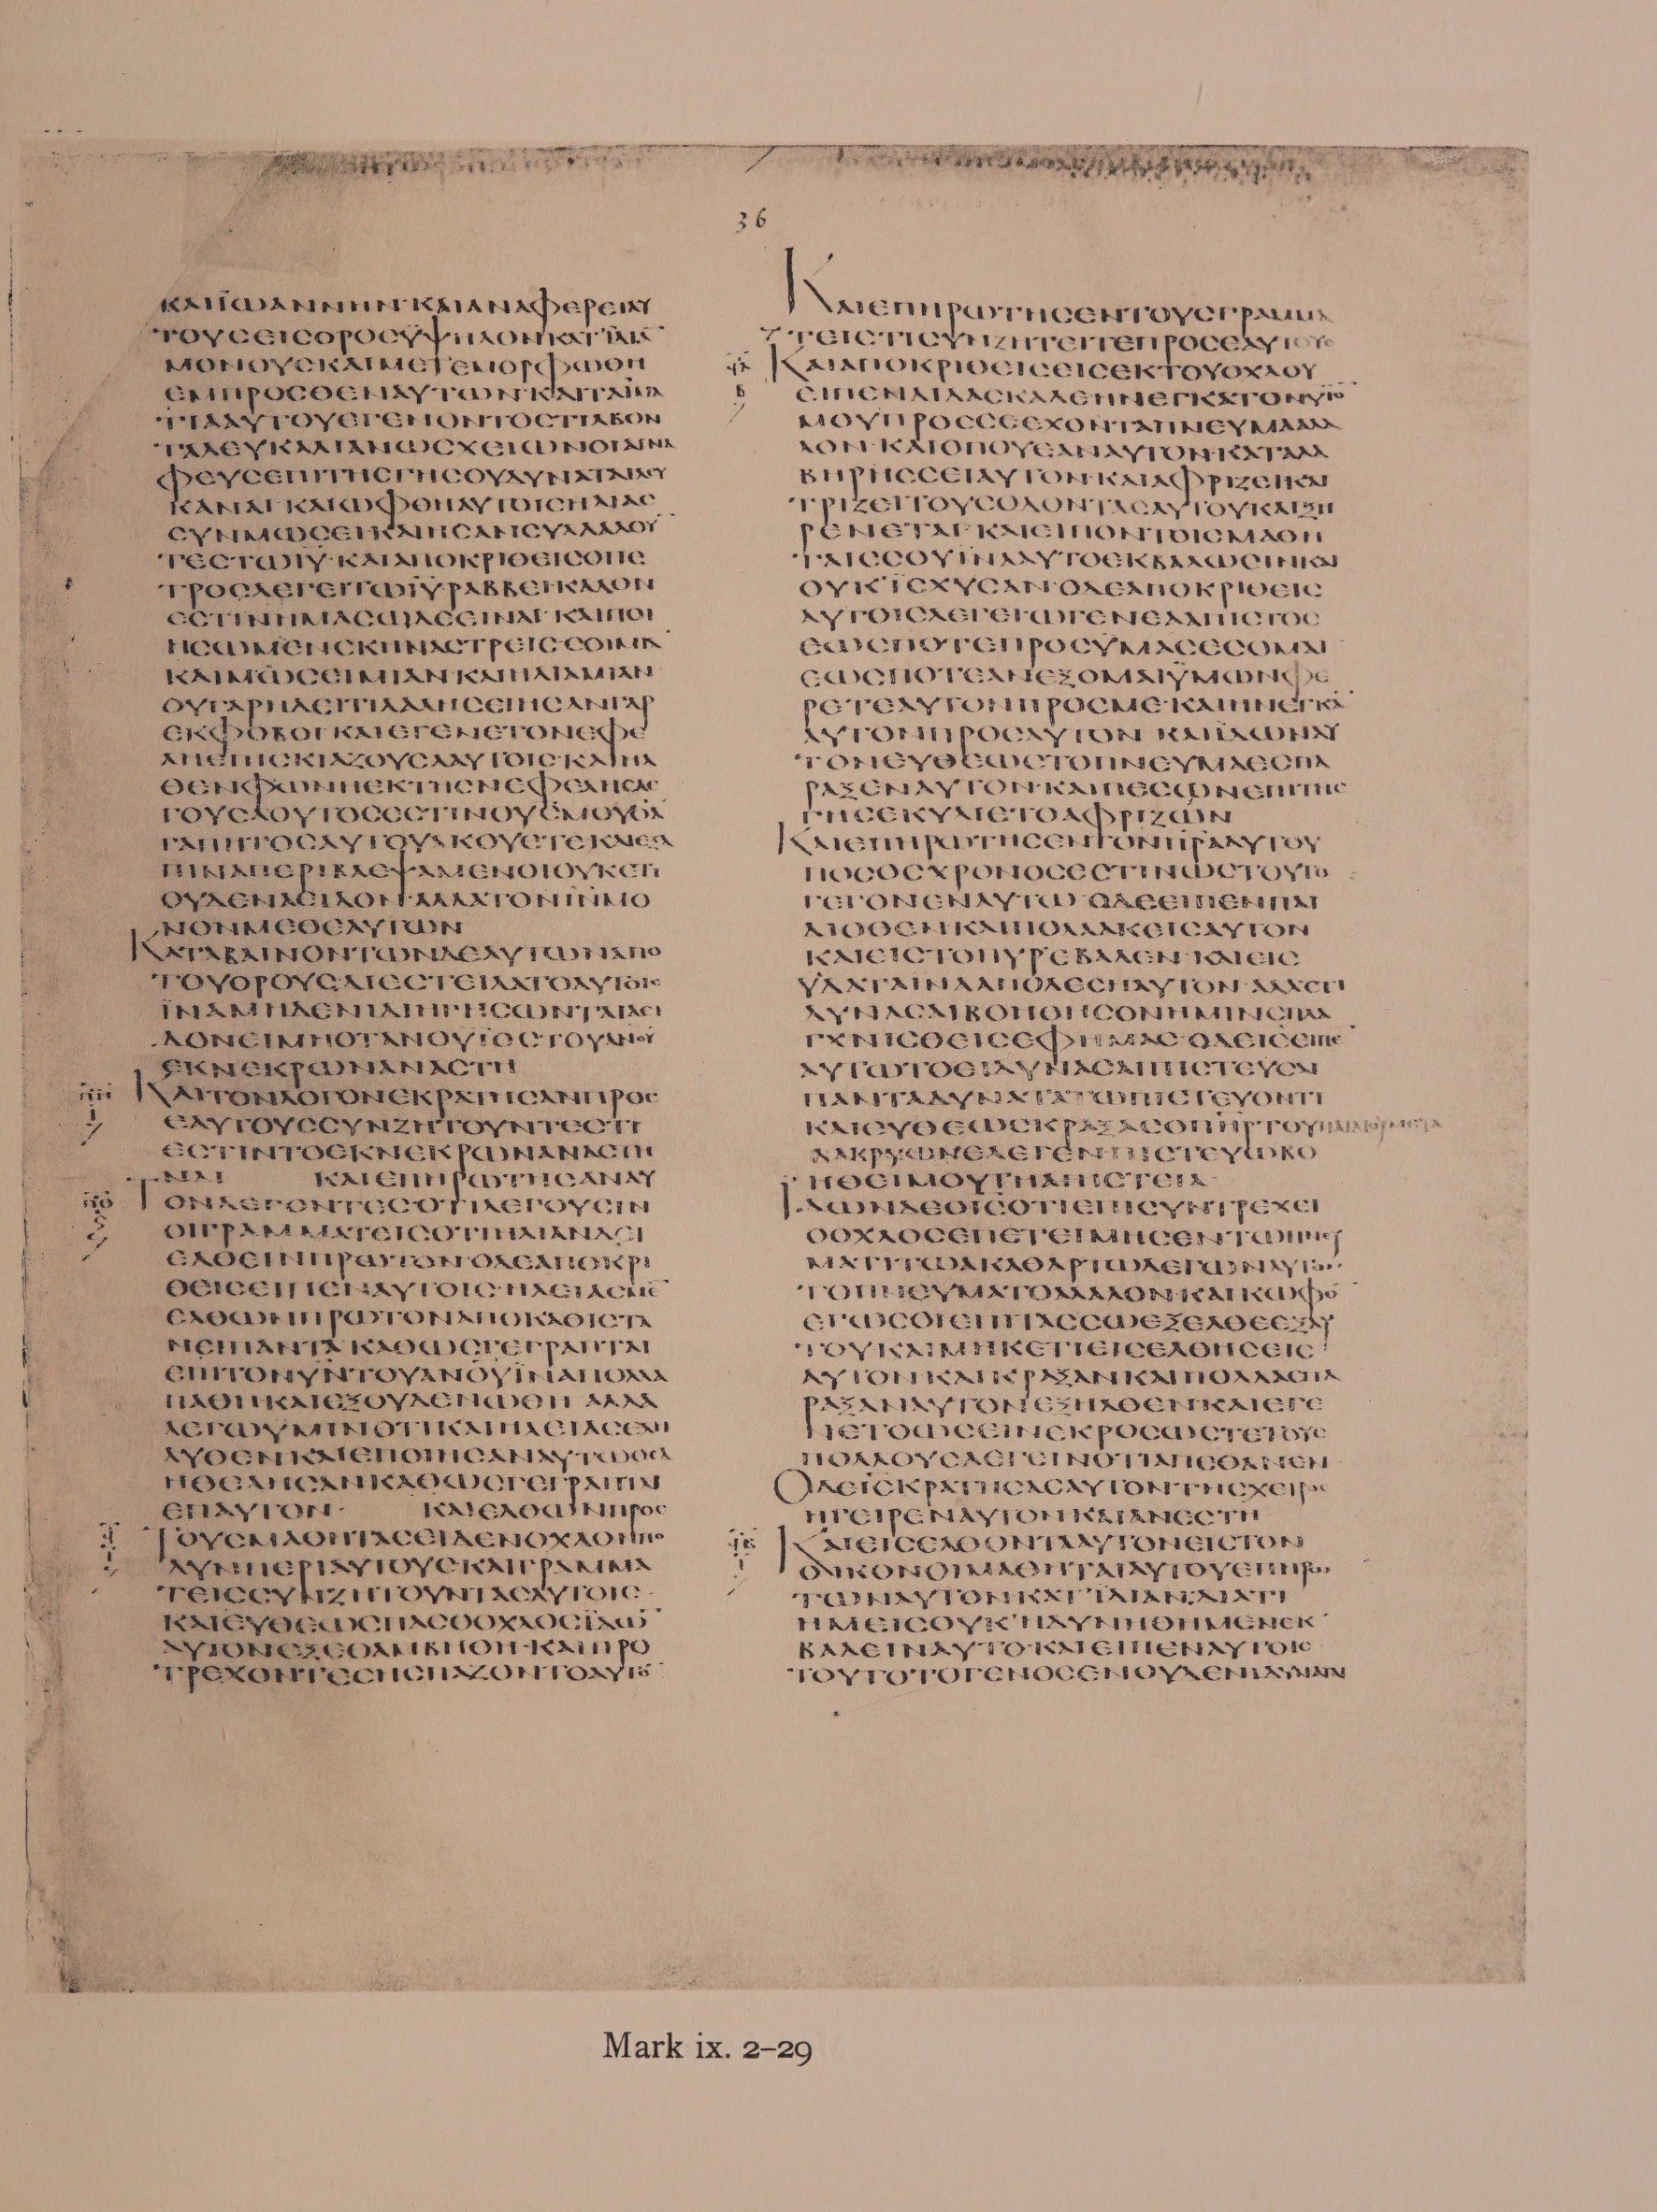 36
ΚΑΙΪΩΑΝΝΗΝ·ΚΑΙΑΝΑΦΕΡΕΙΑΥ
ΤΟΥΣΕΙΣΟΡΟΣΫΨΗΛΟΝΚΑΤΪΔΙΑ̅
ΜΟΝΟΥΣΚΑΙΜΕΤΕΜΟΡΦΩΘΗ
ΕΜΠΡΟΣΘΕΝΑΥΤΩΝ·ΚΑΙΤΑΪΜΑ
ΤΙΑΑΥΤΟΥΕΓΕΝΟΝΤΟΣΤΙΛΒΟΝ
ΤΑΛΕΥΚΑΛΙΑΝΩΣΧΕΙΩΝΟΙΑΓΝΑ
ΦΕΥΣΕΠΙΤΗΣΓΗΣΟΥΔΥΝΑΤΑΙΛΕΥ
ΚΑΝΑΙ· ΚΑΙΩΦΘΗΑΥΤΟΙΣΗΛΙΑΣ
ΣΥΝΜΩΣΕΙ·ΚΑΙΗΣΑΝΣΥΛΛΑΛΟΥ̅
ΤΕΣΤΩΙΥ̅·ΚΑΙΑΠΟΚΡΙΘΕΙΣΟΠΕ
ΤΡΟΣΛΕΓΕΙΤΩΙΥ̅ΡΑΒΒΕΙΚΑΛΟΝ
ΕΣΤΙΝΗΜΑΣΩΔΕΕΙΝΑΙ· ΚΑΙΠΟΙ
ΗΣΩΜΕΝΣΚΗΝΑΣΤΡΕΙΣ·ΣΟΙΜΙΑ̅
ΚΑΙΜΩΣΕΙΜΙΑΝ·ΚΑΙΗΛΙΑΜΙΑΝ
ΟΥΓΑΡΗΔΕΙΤΙΛΑΛΗΣΕΙΗΣΑΝΓΑΡ
ΕΚΦΟΒΟΙ· ΚΑΙΕΓΕΝΕΤΟΝΕΦΕ
ΛΗΕΠΙΣΚΙΑΖΟΥΣΑΑΥΤΟΙΣ·ΚΑΙΗΛ
ΘΕΝΦΩΝΗΕΚΤΗΣΝΕΦΕΛΗΣΛΕ
ΓΟΥΣΑΟΥΤΟΣΕΣΤΙΝΟΥΣ̅ΜΟΥΟΑ
ΓΑΠΗΤΟΣΑΥΤΟΥΑΚΟΥΕΤΕΚΑΙΕΞΑ
ΠΙΝΑΠΕΡΙΒΛΕΨΑΜΕΝΟΙΟΥΚΕΤΙ
ΟΥΔΕΝΑΕΙΔΟΝ·ΑΛΛΑΤΟΝΙ̅Ν̅ΜΟ
ΝΟΝΜΕΘΕΑΥΤΩΝ
ΚΑΤΑΒΑΙΝΟΝΤΩΝΔΕΑΥΤΩΝΑΠΟ
ΤΟΥΟΡΟΥΣΔΙΕΣΤΕΙΛΑΤΟΑΥΤΟΙΣ
ΪΝΑΜΗΔΕΝΙΔΙΗΓΗΣΩΝΤΑΙΑΕΙ
ΔΟΝΕΙΜΗΟΤΑΝΟΥΪΟΣΤΟΥΑΝΟΥ̅
ΕΚΝΕΚΡΩΝΑΝΑΣΤΗ
ΚΑΙΤΟΝΛΟΓΟΝΕΚΡΑΤΗΣΑΝΠΡΟΣ
ΕΑΥΤΟΥΣΣΥΝΖΗΤΟΥΝΤΕΣΤΙ
ΕΣΤΙΝΤΟΕΚΝΕΚΡΩΝΑΝΑΣΤΗ
ΝΑΙ ΚΑΙΕΠΗΡΩΤΗΣΑΝΑΥ
ΤΟΝΛΕΓΟΝΤΕΣΟΤΙΛΕΓΟΥΣΙΝ
ΟΙΓΡΑΜΜΑΤΕΙΣΟΤΙΗΛΙΑΝΔΕΙ
ΕΛΘΕΙΝΠΡΩΤΟΝ·ΟΔΕΑΠΟΚΡΙ
ΘΕΙΣΕΙΠΕΝΑΥΤΟΙΣ·ΗΛΕΙΑΣΜΕ̅
ΕΛΘΩΝΠΡΩΤΟΝΑΠΟΚΑΘΙΣΤΑ
ΝΕΙΠΑΝΤΑ·ΚΑΘΩΣΓΕΓΡΑΠΤΑΙ
ΕΠΙΤΟΝΥΝ̅ΤΟΥΑΝΟΥ̅ΪΝΑΠΟΛΛΑ
ΠΑΘΗ·ΚΑΙΕΞΟΥΔΕΝΩΘΗ ΑΛΛΑ
ΛΕΓΩΥΜΙΝΟΤΙΚΑΙΗΛΕΙΑΣΕΛΗ
ΛΥΘΕΝ·ΚΑΙΕΠΟΙΗΣΑΝΑΥΤΩΟΣΑ
ΗΘΕΛΗΣΑΝΚΑΘΩΣΓΕΓΡΑΠΤΑΙ
ΕΠΑΥΤΟΝ· ΚΑΙΕΛΘΩΝΠΡΟΣ
ΤΟΥΣΜΑΘΗΤΑΣΕΙΔΕΝΟΧΛΟΝΠΟ
ΛΥΝΠΕΡΙΑΥΤΟΥΣΚΑΙΓΡΑΜΜΑ
ΤΕΙΣΣΥΝΖΗΤΟΥΝΤΑΣΑΥΤΟΙΣ
ΚΑΙΕΥΘΕΩΣΠΑΣΟΟΧΛΟΣΪΔΩ̅
ΑΥΤΟΝΕΞΕΘΑΜΒΗΘΗ·ΚΑΙΠΡΟ
ΤΡΕΧΟΝΤΕΣΗΣΠΑΖΟΝΤΟΑΥΤΟ̅
ΚΑΙΕΠΗΡΩΤΗΣΕΝΤΟΥΣΓΡΑΜΜΑ
ΤΕΙΣΤΙΣΥΝΖΗΤΕΙΤΕΠΡΟΣΕΑΥΤΟΥΣ
ΚΑΙΑΠΟΚΡΙΘΕΙΣΕΙΣΕΚΤΟΥΟΧΛΟΥ
ΕΙΠΕΝΔΙΔΑΣΚΑΛΕΗΝΕΓΚΑΤΟΝΥΙΟ̅
ΜΟΥΠΡΟΣΣΕΕΧΟΝΤΑΠΝΕΥΜΑΑΛΑ
ΛΟΝ·ΚΑΙΟΠΟΥΕΑΝΑΥΤΟΝΚΑΤΑΛΑ
ΒΗΡΗΣΣΕΙΑΥΤΟΝ·ΚΑΙΑΦΡΙΖΕΙΚΑΙ
ΤΡΙΖΕΙΤΟΥΣΟΔΟΝΤΑΣΑΥΤΟΥΚΑΙΞΗ
ΡΕΝΕΤΑΙ· ΚΑΙΕΙΠΟΝΤΟΙΣΜΑΘΗ
ΤΑΙΣΣΟΥΪΝΑΑΥΤΟΕΚΒΑΛΩΣΙΝΚΑΙ
ΟΥΚΪΣΧΥΣΑΝ·ΟΔΕΑΠΟΚΡΙΘΕΙΣ
ΑΥΤΟΙΣΛΕΓΕΙΩΓΕΝΕΑΑΠΙΣΤΟΣ
ΕΩΣΠΟΤΕΠΡΟΣΫΜΑΣΕΣΟΜΑΙ
ΕΩΣΠΟΤΕΑΝΕΞΟΜΑΙΫΜΩΝΦΕ
ΡΕΤΕΑΥΤΟΝΠΡΟΣΜΕ·ΚΑΙΗΝΕΓΚΑ̅
ΑΥΤΟΝΠΡΟΣΑΥΤΟΝ ΚΑΙΪΔΩΝΑΥ
ΤΟΝΕΥΘΕΩΣΤΟΠΝΕΥΜΑΕΣΠΑ
ΡΑΞΕΝΑΥΤΟΝ·ΚΑΙΠΕΣΩΝΕΠΙΤΗΣ
ΓΗΣΕΚΥΛΙΕΤΟΑΦΡΙΖΩΝ
ΚΑΙΕΠΗΡΩΤΗΣΕΝΤΟΝΠΡΑ̅ΑΥΤΟΥ
ΠΟΣΟΣΧΡΟΝΟΣΕΣΤΙΝΩΣΤΟΥΤΟ
ΓΕΓΟΝΕΝΑΥΤΩ·ΟΔΕΕΙΠΕΝΠΑΙ
ΔΙΟΘΕΝΚΑΙΠΟΛΛΑΚΕΙΣΑΥΤΟΝ
ΚΑΙΕΙΣΤΟΠΥΡΕΒΑΛΕΝ·ΚΑΙΕΙΣ
ΫΔΑΤΑΙΝΑΑΠΟΛΕΣΗΑΥΤΟΝ·ΑΛΛΕΙΤΙ
ΔΥΝΑΣΑΙΒΟΗΘΗΣΟΝΗΜΙΝΣΠΛΑ
ΓΧΝΙΣΘΕΙΣΕΦΗΜΑΣ·ΟΔΕΙΣ̅ΕΙΠΕ
ΑΥΤΩΤΟΕΙΔΥΝΑΣΑΙΠΙΣΤΕΥΣΑΙ
ΠΑΝΤΑΔΥΝΑΤΑΤΩΠΙΣΤΕΥΟΝΤΙ
ΚΑΙΕΥΘΕΩΣΚΡΑΞΑΣΟΠΗΡ̅ΤΟΥΠΑΙΔΙΟΥΜΕΤΑ
ΔΑΚΡΥΩΝΕΛΕΓΕΝΠΙΣΤΕΥΩΒΟ
ΗΘΕΙΜΟΥΤΗΑΠΙΣΤΕΙΑ
ΪΔΩΝΔΕΟΙΣ̅ΟΤΙΕΠΙΣΥΝΤΡΕΧΕΙ
ΟΟΧΛΟΣΕΠΕΤΕΙΜΗΣΕΝΤΩΠΝΕΥ
ΜΑΤΙΤΩΑΚΑΘΑΡΤΩΛΕΓΩΝΑΥΤΩ·
ΤΟΠΝΕΥΜΑΤΟΑΛΑΛΟΝ·ΚΑΙΚΩΦΟ̅
ΕΓΩΣΟΙΕΠΙΤΑΣΣΩΕΞΕΛΘΕΕΞΑΥ
ΤΟΥΚΑΙΜΗΚΕΤΙΕΙΣΕΛΘΗΣΕΙΣ
ΑΥΤΟΝΚΑΙΚΡΑΞΑΝΚΑΙΠΟΛΛΑΣΠΑ
ΡΑΞΑΝΑΥΤΟΝΕΞΗΛΘΕΝΚΑΙΕΓΕ
ΝΕΤΟΩΣΕΙΝΕΚΡΟΣΩΣΤΕΤΟΥΣ
ΠΟΛΛΟΥΣΛΕΓΕΙΝΟΤΙΑΠΕΘΑΝΕΝ
ΟΔΕΙΣ̅ΚΡΑΤΗΣΑΣΑΥΤΟΝΤΗΣΧΕΙΡΟΣ
ΗΓΕΙΡΕΝΑΥΤΟΝΚΑΙΑΝΕΣΤΗ
ΚΑΙΕΙΣΕΛΘΟΝΤΑΑΥΤΟΝΕΙΣΤΟΝ
ΟΙΚΟΝΟΙΜΑΘΗΤΑΙΑΥΤΟΥΕΠΗΡΩ
ΤΩΝΑΥΤΟΝΚΑΤΪΔΙΑΝ·ΔΙΑΤΙ
ΗΜΕΙΣΟΥΚΗΔΥΝΗΘΗΜΕΝΕΚ
ΒΑΛΕΙΝΑΥΤΟ·ΚΑΙΕΙΠΕΝΑΥΤΟΙΣ
ΤΟΥΤΟΤΟΓΕΝΟΣΕΝΟΥΔΕΝΙΔΥΝΑΤΑΙ
Mark ix. 2–29